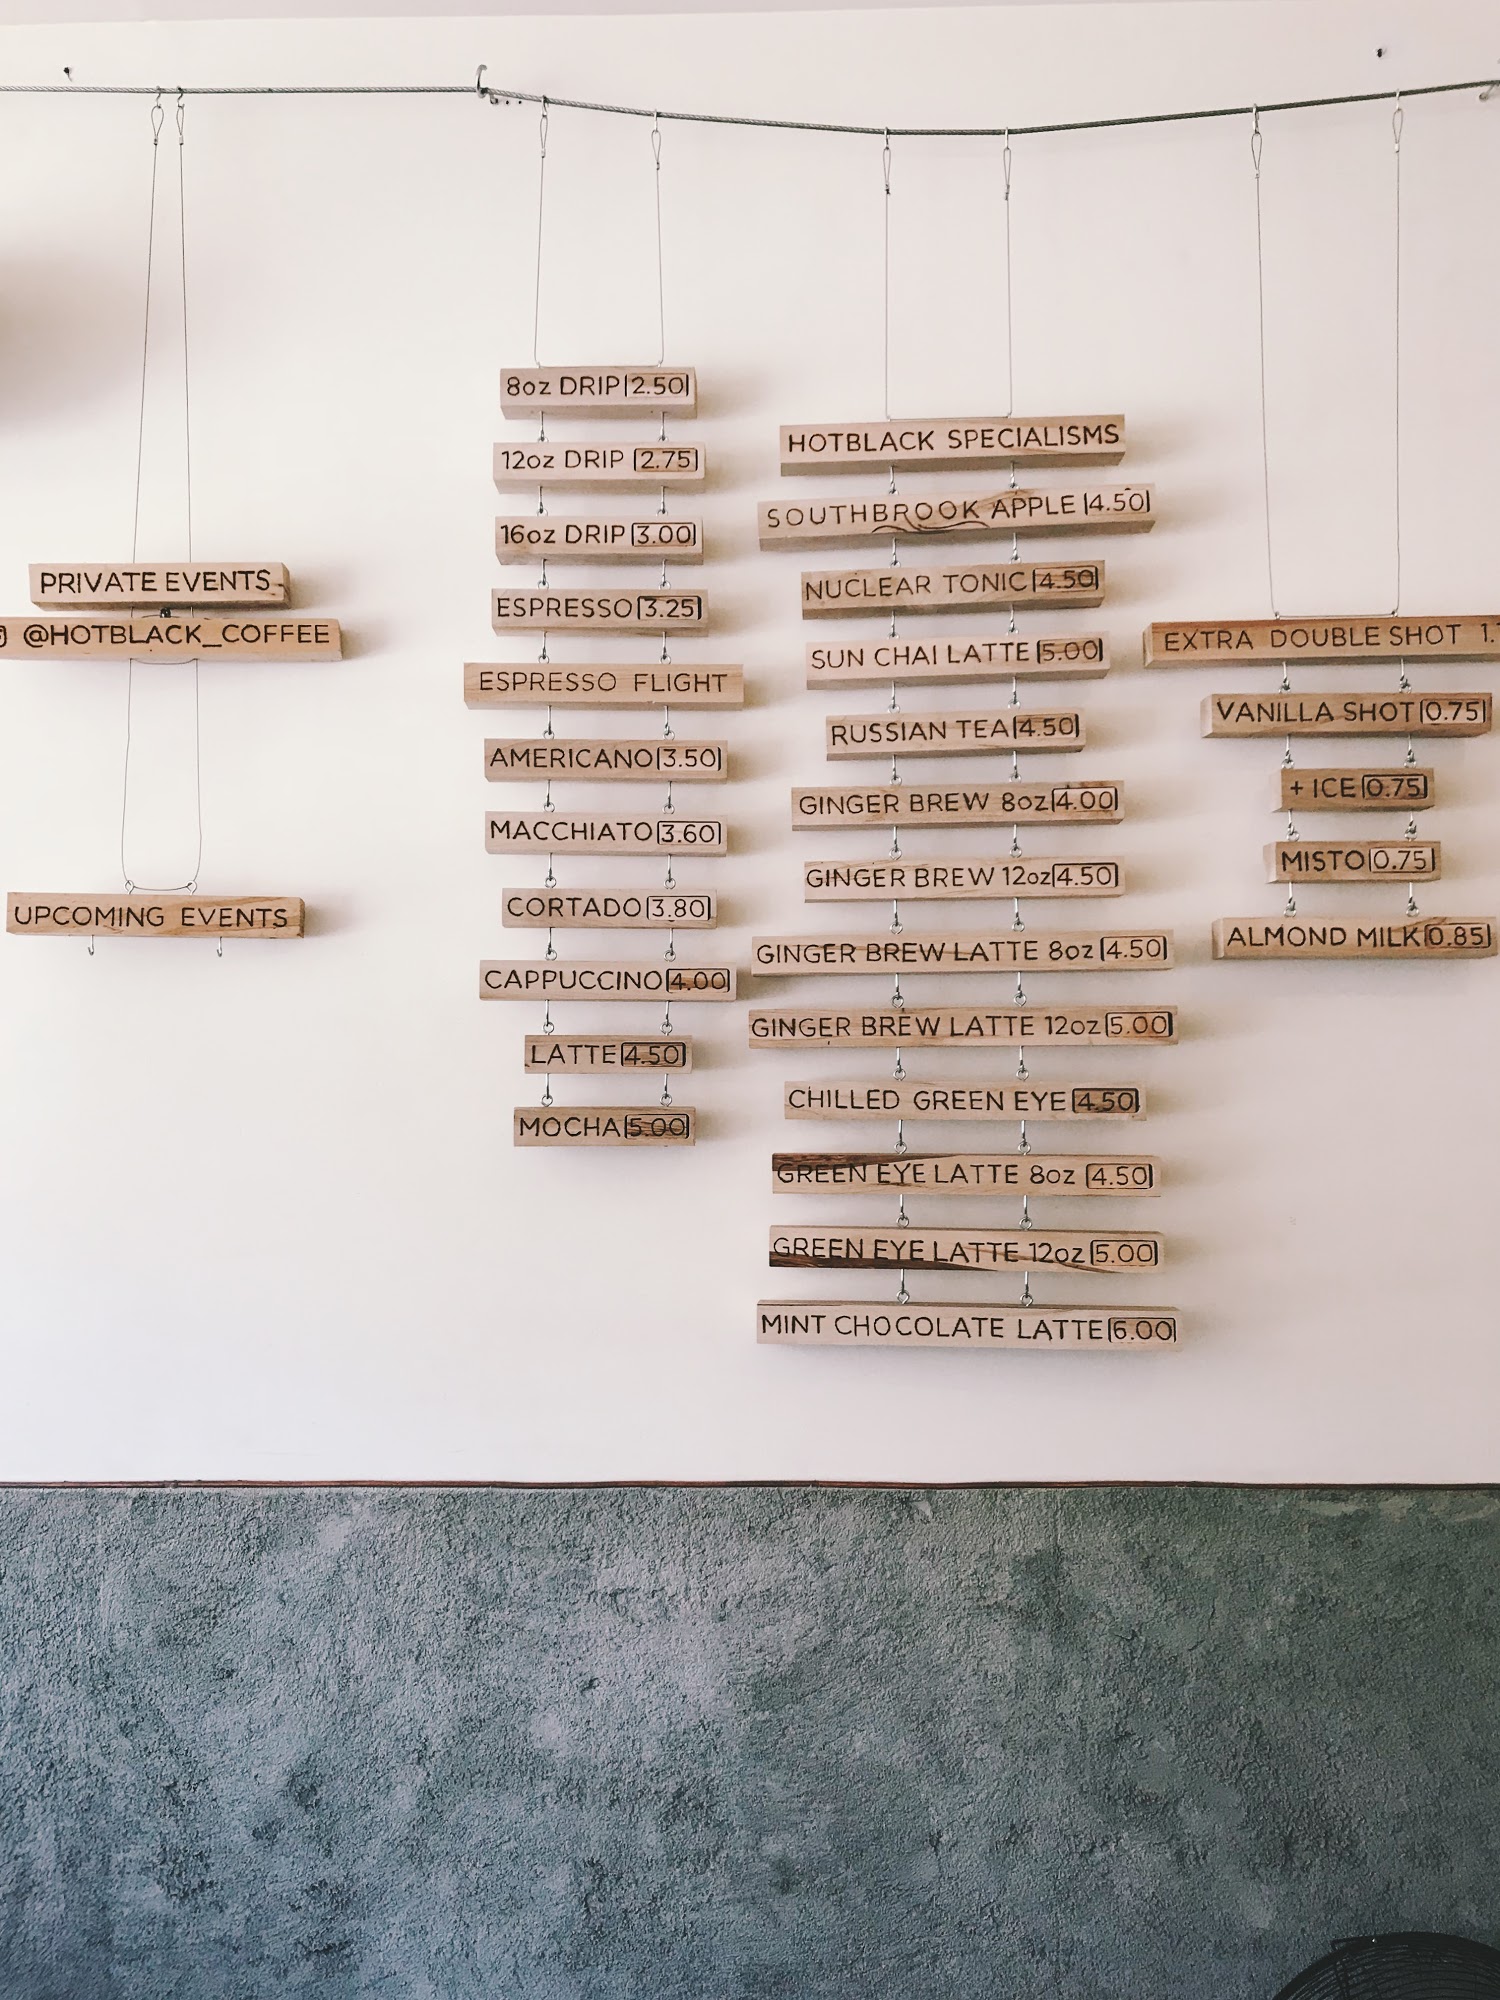 PRIVATE EVENTS
@HOTBLACK_COFFEE
UPCOMING EVENTS
8oz DRIP 2.50
12oz DRIP 2.75
16oz DRIP 3.00
ESPRESSO 3.25
ESPRESSO FLIGHT
AMERICANO 3.50
MACCHIATO 3.60
CORTADO 3.80
CAPPUCCINO 4.00
LATTE 4.50
MOCHA 5.00
HOTBLACK SPECIALISMS
SOUTHBROOK APPLE 4.50
NUCLEAR TONIC 4.50
SUN CHAI LATTE 5.00
RUSSIAN TEA 4.50
GINGER BREW 8oz 4.00
GINGER BREW 12oz 4.50
GINGER BREW LATTE 8oz 4.50
GINGER BREW LATTE 12oz 5.00
CHILLED GREEN EYE 4.50
GREEN EYE LATTE 8oz 4.50
GREEN EYE LATTE 12oz 5.00
MINT CHOCOLATE LATTE 6.00
EXTRA DOUBLE SHOT
VANILLA SHOT 0.75
+ ICE 0.75
MISTO 0.75
ALMOND MILK 0.85